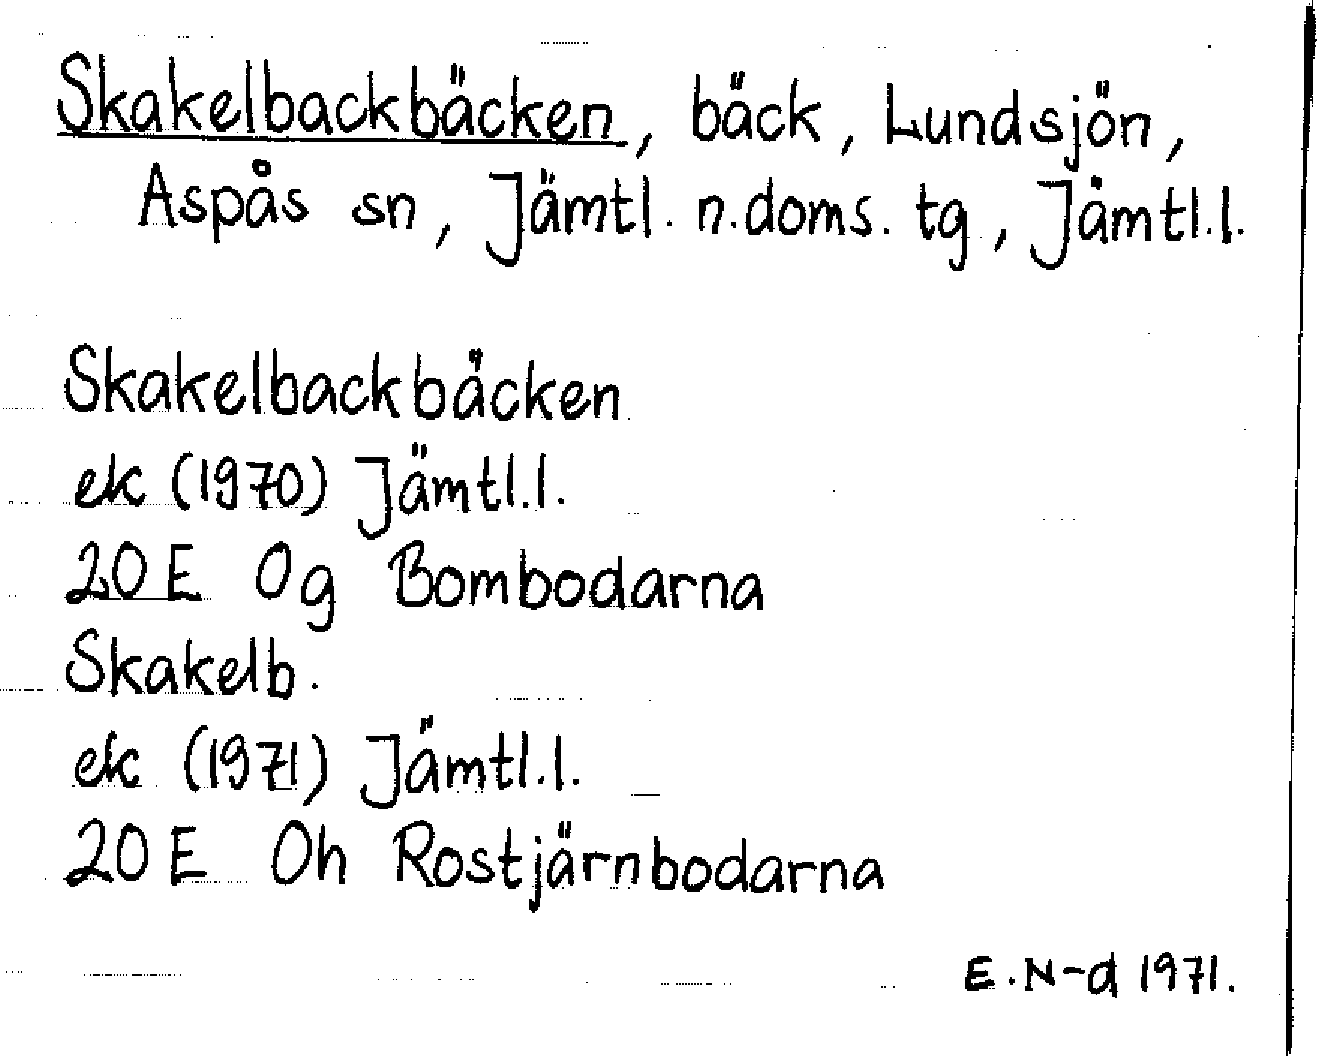 Skakelbackbäcken, bäck, Lundsjön,
Aspås sn, Jämtl. n.doms. tg, Jämtl.l.
Skakelbackbäcken
ek (1970) Jämtl.l.
20E 0g Bombodarna
Skakelb.
ek (1971) Jämtl.l.
20E 0h Rostjärnbodarna
E.N-d 1971.